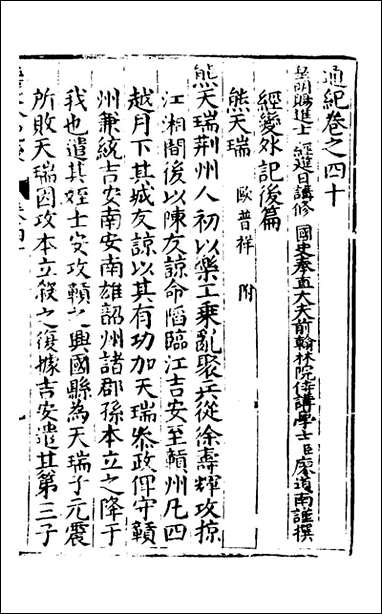 通紀卷之四十
皇明賜進士 經筵日講修 國史奉直大夫前翰林院侍講學士臣廖道南謹撰
經變外記後篇
熊天瑞 歐普祥 附
熊天瑞荆州人初以樂工乗亂聚兵從徐壽輝攻掠
江湘閒後以陳友諒命陷臨江吉安至贑州凡四
越月下其城友諒以其有功加天瑞叅政俾守贑
州兼統吉安南安南雄韶州諸郡孫本立之降于
我也遣其姪士安攻贑之興國縣為天瑞子元震
所敗天瑞因攻本立殺之復據吉安遣其第三子